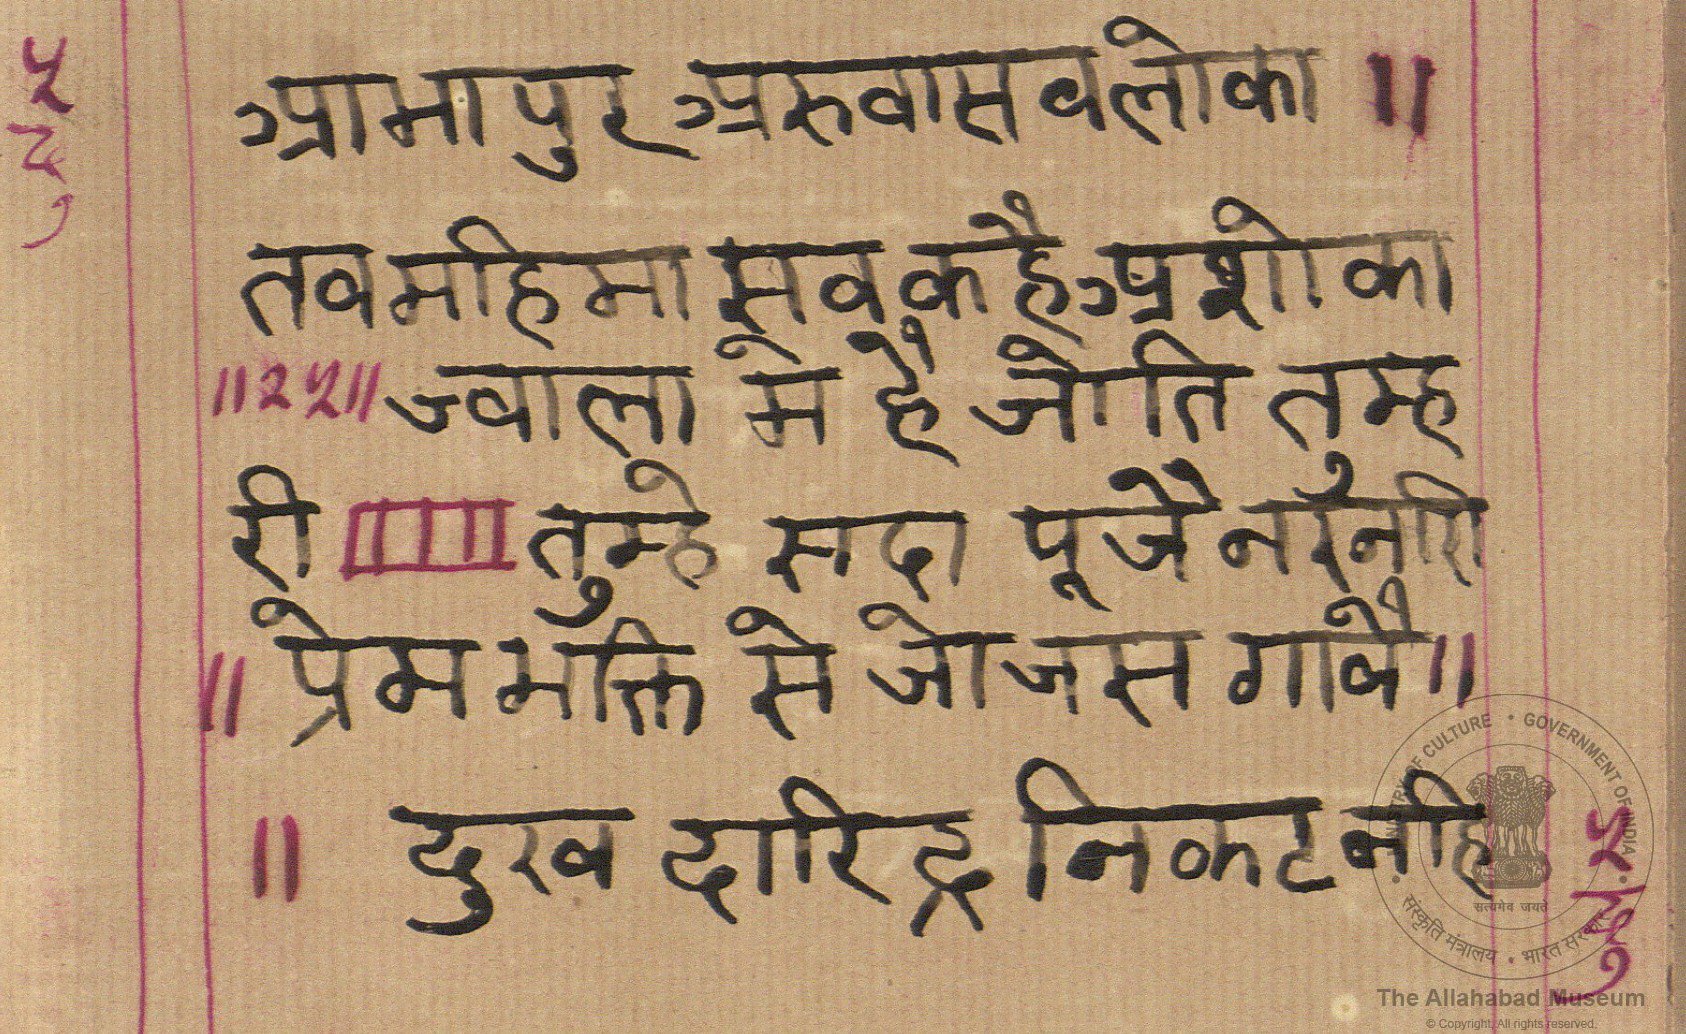 अमापुर अरुवासवलोका ॥
तव महिमा सव कहै अशोका
॥२५॥ ज्वाला मे है जोति तुम्ह
री तुम्हे सदा पूजै नर नारी
॥ प्रेम भक्ति से जो जस गावै ॥
॥ दुख दारिद्र निकट नहि
MINISTRY OF CULTURE • GOVERNMENT OF INDIA
सत्यमेव जयते
संस्कृति मंत्रालय • भारत सरकार
The Allahabad Museum
© Copyright. All rights reserved.